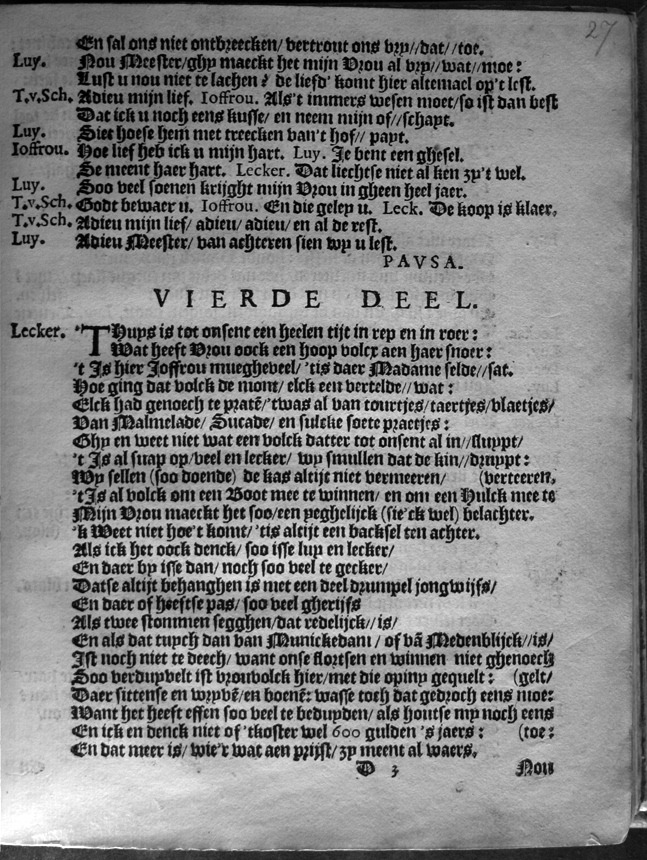 27
En sal ons niet ontbreecken/ vertrout ons vry//dat//toe.
Luy. Nou Meester/ghy maeckt het mijn Vrou al vry//wat//moe:
Lust u nou niet te lachen? de liefd' komt hier altemael op't lest.
T.v.Sch. Adieu mijn lief. Ioffrou. Als't immers wesen moet/so ist dan best
Dat ick u noch eens kusse/ en neem mijn of//schapt.
Luy. Siet hoese hem met treecken van't hof// papt.
Ioffrou. Hoe lief heb ick u mijn hart. Luy. Je bent een ghesel.
Se meent haer hart. Lecker. Dat liechtse niet al ken zy't wel.
Luy. Soo veel soenen krijght mijn Vrou in gheen heel jaer.
T.v.Sch. Godt bewaer u. Ioffrou. En die geley u. Leck. De koop is klaer,
T.v.Sch. Adieu mijn lief/ adieu/ adieu/ en al de rest.
Luy. Adieu Meester/ van achteren sien wy u lest.
PAVSA.
VIERDE DEEL.
Lecker. 'THuys is tot onsent een heelen tijt in rep en in roer:
Wat heeft Vrou oock een hoop volcx aen haer snoer:
't Is hier Joffrou mueghveel/ 'tis daer Madame selde//sat.
Hoe ging dat volck de mont/ elck een vertelde//wat:
Elck had genoech te pratē/'twas al van tourtjes/taertjes/vlaetjes/
Van Malmelade/ Sucade/ en sulcke soete praetjes:
Ghy en weet niet wat een volck datter tot onsent al in//sluypt/
't Is al suap op/veel en lecker/ wy smullen dat de kin//druypt:
Wy sellen (soo doende) de kas altijt niet vermeeren/ (verteeren,
'tIs al volck om een Boot mee te winnen/ en om een Hulck mee te
Mijn Vrou maeckt het soo/een yeghelijck (sie'ck wel) belachter.
'k Weet niet hoe't komt/ 'tis altijt een backsel ten achter.
Als ick het oock denck/ soo isse luy en lecker/
En daer by isse dan/ noch soo veel te gecker/
Datse altijt behanghen is met een deel drumpel jongwijfs/
En daer of heeftse pas/ soo veel gherijfs
Als twee stommen segghen/dat redelijck//is/
En als dat tuych dan van Munickedam/ of vā Medenblijck//is/
Ist noch niet te deech/ want onse floртsen en winnen niet ghenoech
Soo verduyvelt ist vrouvolck hier/met die opiny gequelt: (gelt/
Daer sittense en wryvē/en boenē: wasse toch dat gedroch eens moe:
Want het heeft effen soo veel te beduyden/ als houtse my noch eens
En ick en denck niet of 'tkoster wel 600 gulden 's jaers: (toe:
En dat meer is/ wie'r wat aen prijst/ zy meent al waers.
D 3 Nou